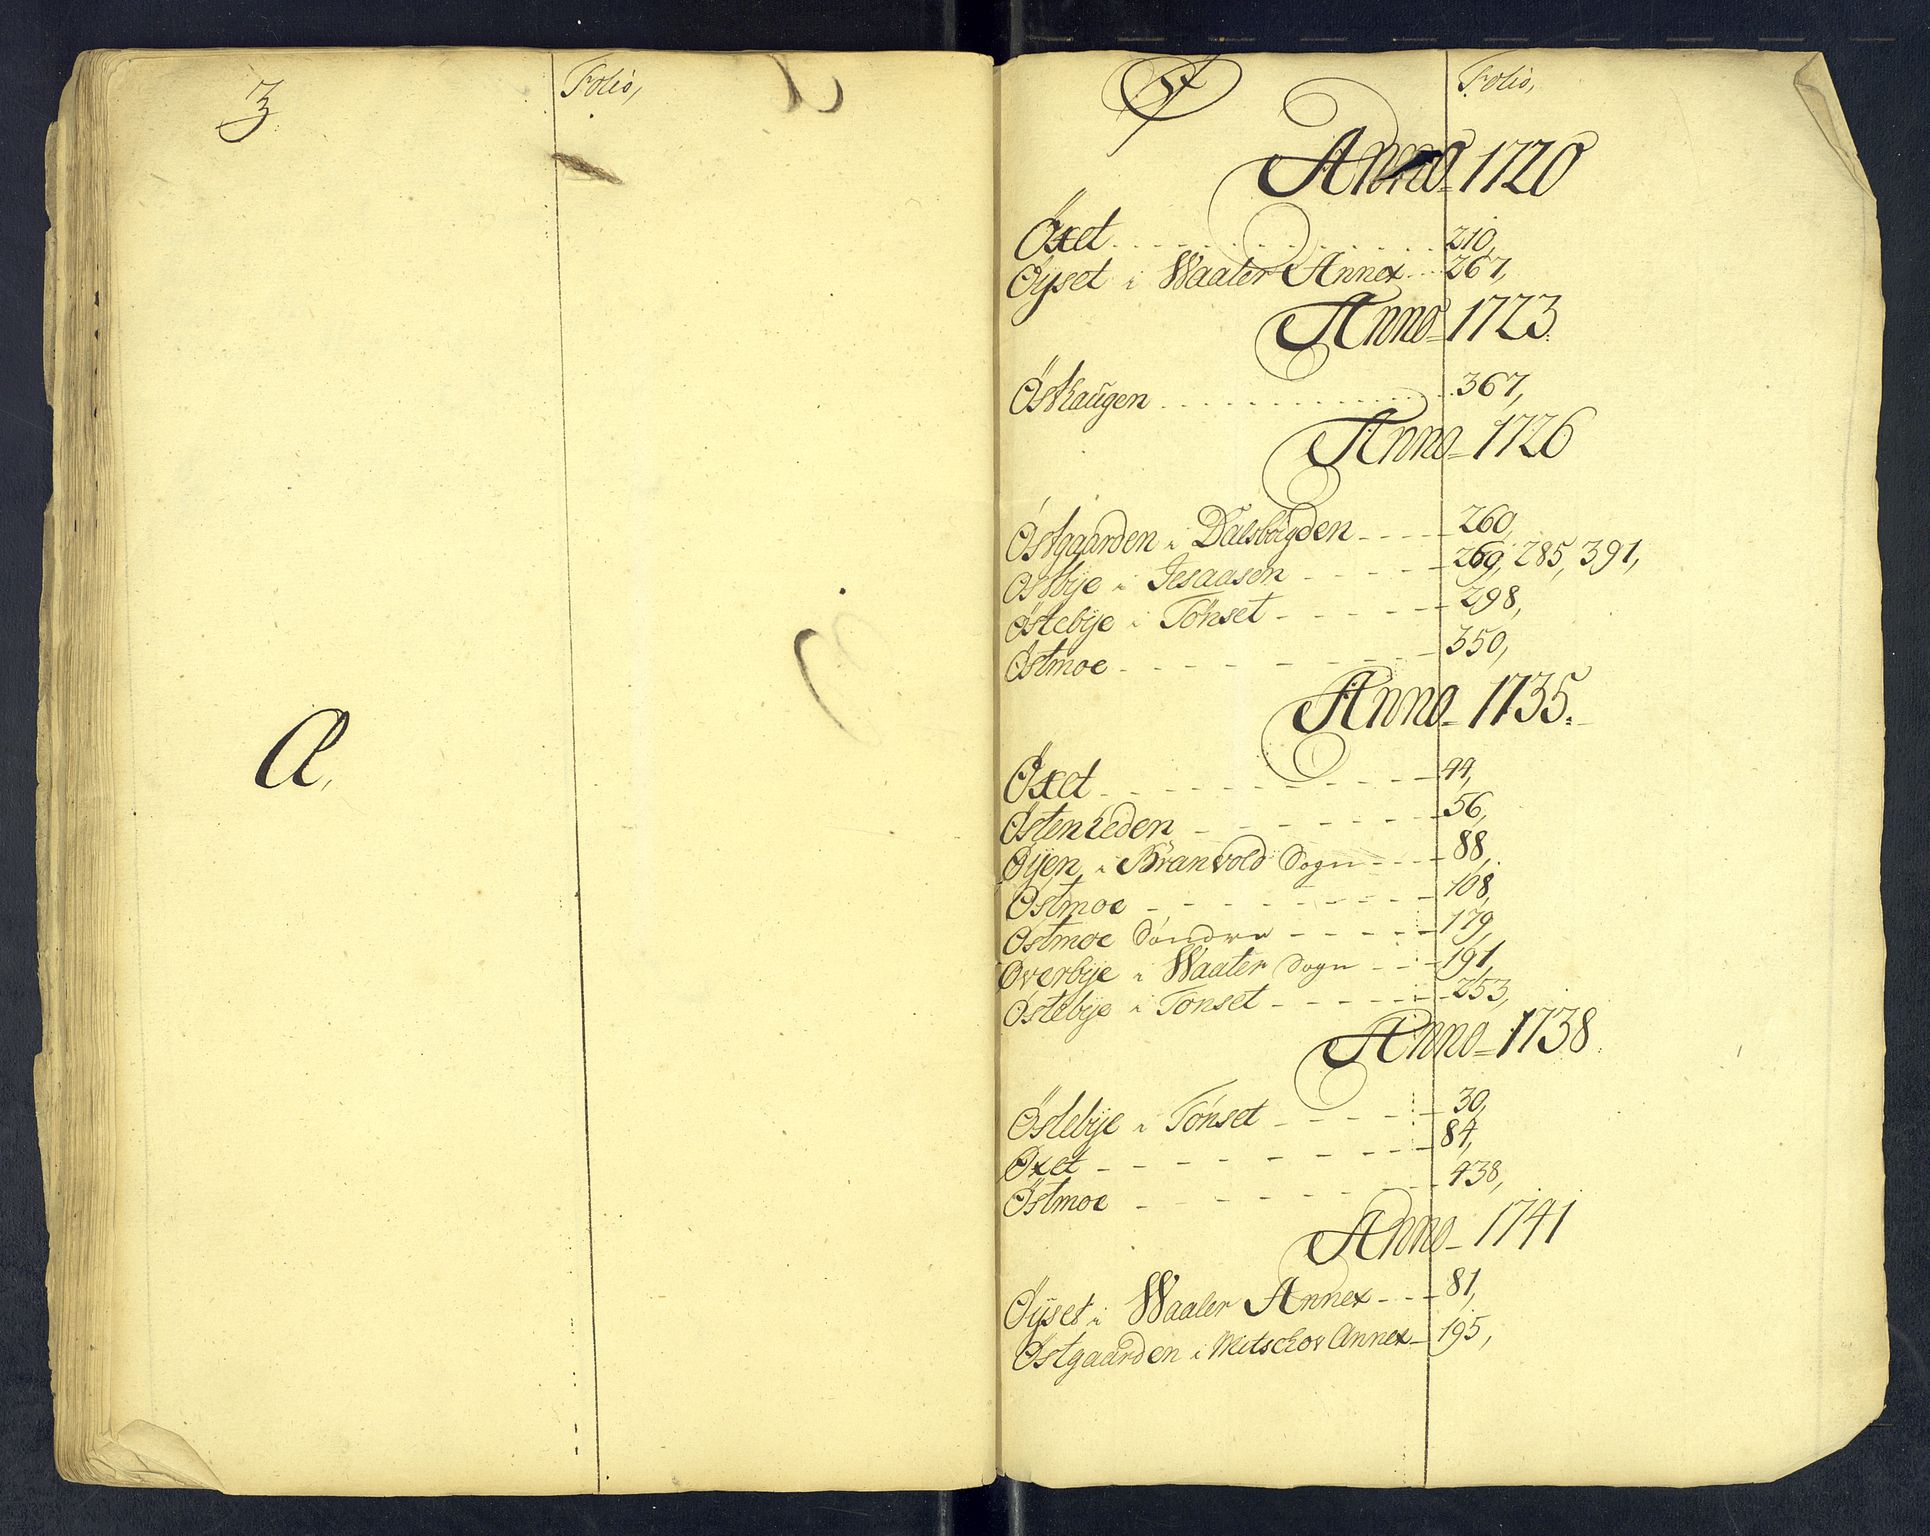 Z
Folio,
Æ,
Ø
Folio,
Anno 1720
Øxet 210,
Øyset i Waaler Annex 267,
Anno 1723
Østhaugen 367,
Anno 1726
Østgaarden i Dalsbøigden 260,
Østbÿe i Jesaasen 269, 285, 391,
Østebÿe i Tønset 298,
Østmoe 350,
Anno 1735.
Øxet 44,
Østenheden 56,
Øÿen i Branvold Sogn 88,
Østmoe 108,
Østmoe Søndre 179,
Øverbÿe i Waaler Sogn 191,
Østebÿe i Tønset 253,
Anno 1738
Østebÿe i Tønset 30,
Øxet 84,
Østmoe 438,
Anno 1741
Øÿset i Waaler Annex 81,
Østgaarden i Metschov Annex 195,